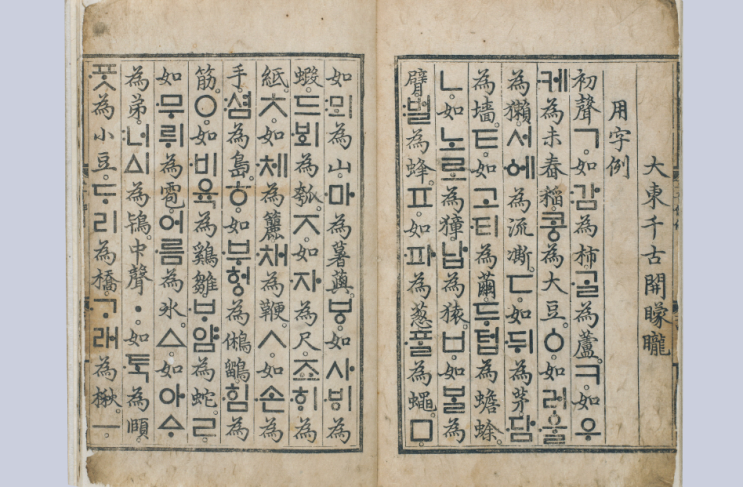 大東千古開朦朧
用字例
初聲ㄱ如감為柿ᄀᆞᆯ為蘆ㅋ如우
케為未舂稻콩為大豆ㆁ如러ᅌᅮᆯ
為獺서ᅌᅦ為流凘ㄷ如뒤為茅담
為墻ㅌ如고티為繭두텁為蟾蜍
ㄴ如노로為獐납為猿ㅂ如ᄇᆞᆯ為
臂벌為蜂ㅍ如파為葱ᄑᆞᆯ為蠅ㅁ
如뫼為山마為薯藇ㅸ如사ᄫᅵ為
蝦드ᄫᅴ為瓠ㅈ如자為尺죠ᄒᆡ為
紙ㅊ如체為籭채為鞭ㅅ如손為
手셤為島ㅎ如부헝為鵂鶹힘為
筋ㅇ如비육為鷄雛ᄇᆞ얌為蛇ㄹ
如무뤼為雹어름為氷ㅿ如아ᅀᆞ
為弟너ᅀᅵ為鴇中聲ㆍ如ᄐᆞᆨ為頤
ᄑᆞᆺ為小豆ᄃᆞ리為橋ᄀᆞ래為楸ㅡ